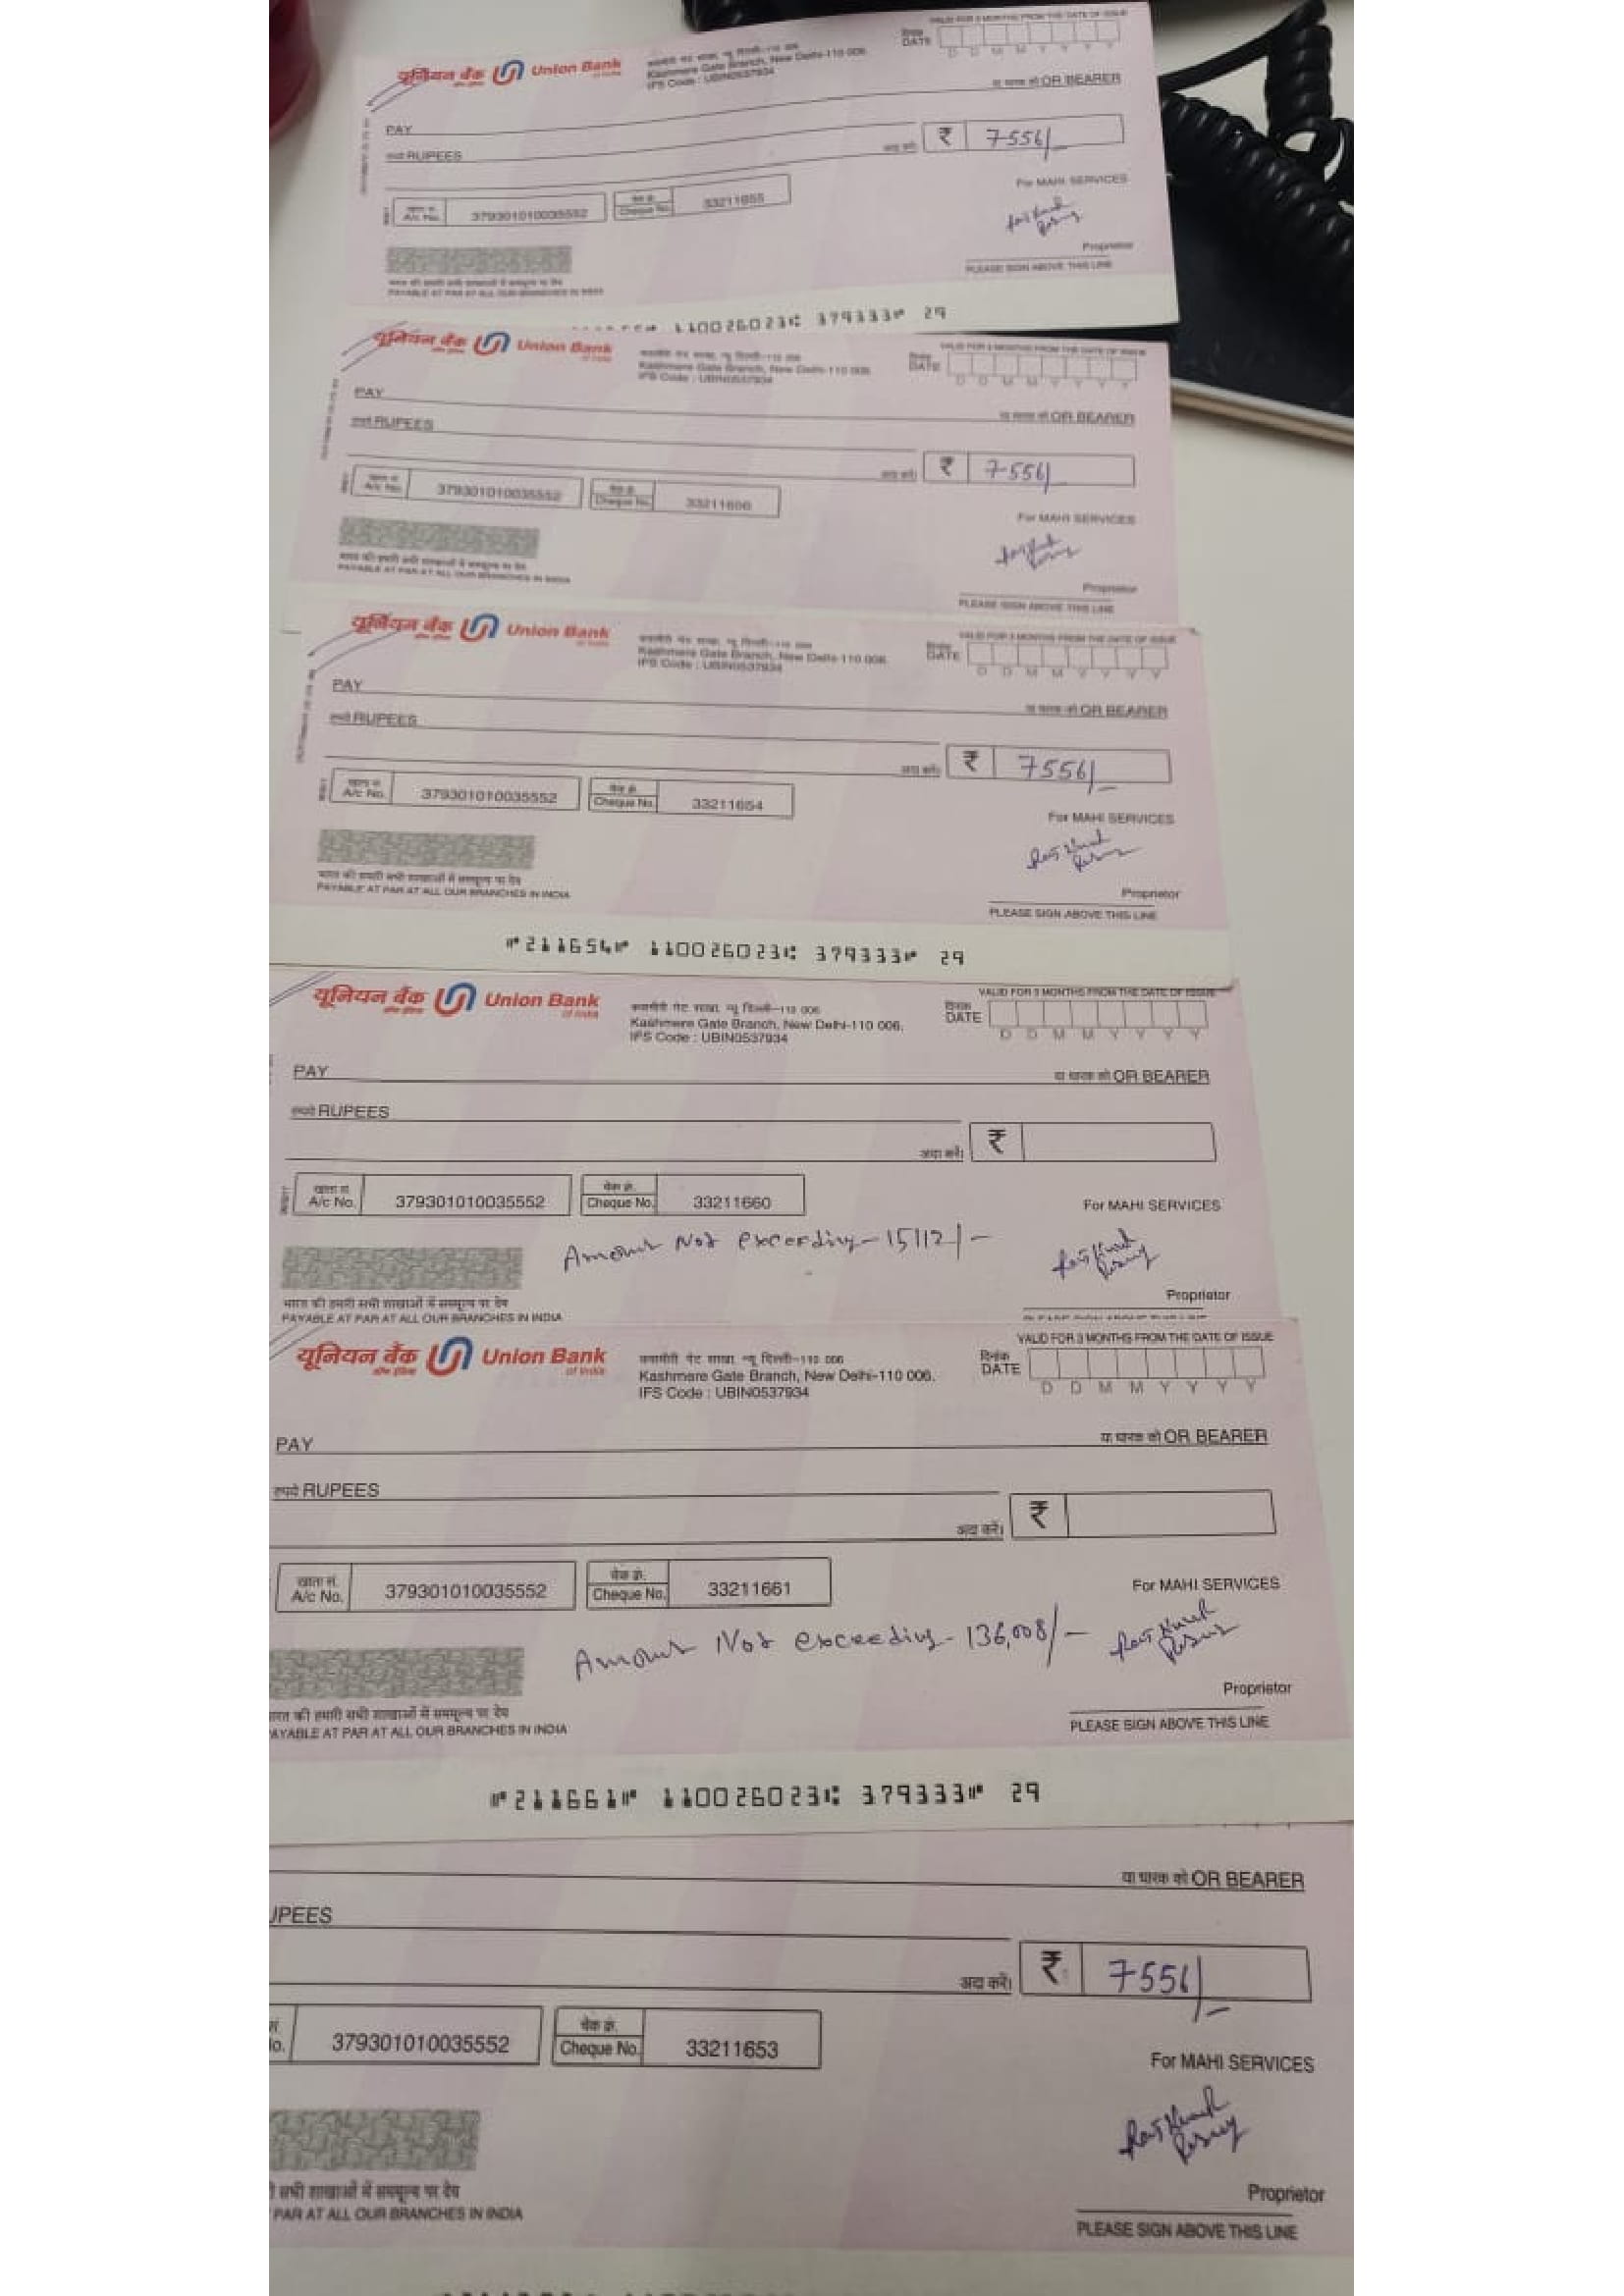 VALID FOR 3 MONTHS FROM THE DATE OF ISSUE
यूनियन बैंक Union Bank
of India
Kashmere Gate Branch, New Delhi-110 006.
IFS Code : UBIN0537934
दिनांक
DATE
D D M M Y Y Y Y
PAY
या धारक को OR BEARER
रुपये RUPEES
अदा करें।
₹ 7556/-
खाता सं.
A/c No. 379301010035552
चेक क्र.
Cheque No. 33211655
For MAHI SERVICES
Proprietor
PLEASE SIGN ABOVE THIS LINE
भारत की हमारी सभी शाखाओं में सममूल्य पर देय
PAYABLE AT PAR AT ALL OUR BRANCHES IN INDIA
110026023 379333 29
यूनियन बैंक Union Bank
of India
Kashmere Gate Branch, New Delhi-110 006.
IFS Code : UBIN0537934
VALID FOR 3 MONTHS FROM THE DATE OF ISSUE
दिनांक
DATE
D D M M Y Y Y Y
PAY
या धारक को OR BEARER
रुपये RUPEES
अदा करें।
₹ 7556/
खाता सं.
A/c No. 379301010035552
चेक क्र.
Cheque No.
For MAHI SERVICES
Proprietor
PLEASE SIGN ABOVE THIS LINE
भारत की हमारी सभी शाखाओं में सममूल्य पर देय
PAYABLE AT PAR AT ALL OUR BRANCHES IN INDIA
यूनियन बैंक Union Bank
of India
Kashmere Gate Branch, New Delhi-110 006.
IFS Code : UBIN0537934
VALID FOR 3 MONTHS FROM THE DATE OF ISSUE
दिनांक
DATE
D D M M Y Y Y Y
PAY
या धारक को OR BEARER
रुपये RUPEES
अदा करें।
₹ 7556/-
खाता सं.
A/c No. 379301010035552
चेक क्र.
Cheque No. 33211654
For MAHI SERVICES
Proprietor
PLEASE SIGN ABOVE THIS LINE
भारत की हमारी सभी शाखाओं में सममूल्य पर देय
PAYABLE AT PAR AT ALL OUR BRANCHES IN INDIA
⑈211654⑈ 110026023⑆ 379333⑈ 29
यूनियन बैंक Union Bank
ऑफ इंडिया of India
कश्मीरी गेट शाखा, न्यू दिल्ली-110 006
Kashmere Gate Branch, New Delhi-110 006.
IFS Code : UBIN0537934
VALID FOR 3 MONTHS FROM THE DATE OF ISSUE
दिनांक
DATE
D D M M Y Y Y Y
PAY
या धारक को OR BEARER
रुपये RUPEES
अदा करें।
₹
खाता सं.
A/c No. 379301010035552
चेक क्र.
Cheque No. 33211660
For MAHI SERVICES
Amount Not exceeding - 15112/-
Proprietor
भारत की हमारी सभी शाखाओं में सममूल्य पर देय
PAYABLE AT PAR AT ALL OUR BRANCHES IN INDIA
यूनियन बैंक Union Bank
ऑफ इंडिया of India
कश्मीरी गेट शाखा, न्यू दिल्ली-110 006
Kashmere Gate Branch, New Delhi-110 006.
IFS Code : UBIN0537934
VALID FOR 3 MONTHS FROM THE DATE OF ISSUE
दिनांक
DATE
D D M M Y Y Y Y
PAY
या धारक को OR BEARER
रुपये RUPEES
अदा करें।
₹
खाता सं.
A/c No. 379301010035552
चेक क्र.
Cheque No. 33211661
For MAHI SERVICES
Amount Not exceeding - 136,008/-
Proprietor
PLEASE SIGN ABOVE THIS LINE
भारत की हमारी सभी शाखाओं में सममूल्य पर देय
AYABLE AT PAR AT ALL OUR BRANCHES IN INDIA
⑈211661⑈ 110026023⑆ 379333⑈ 29
या धारक को OR BEARER
UPEES
अदा करें।
₹ 7556/-
379301010035552
चेक क्र.
Cheque No. 33211653
For MAHI SERVICES
Proprietor
PLEASE SIGN ABOVE THIS LINE
सभी शाखाओं में सममूल्य पर देय
PAR AT ALL OUR BRANCHES IN INDIA